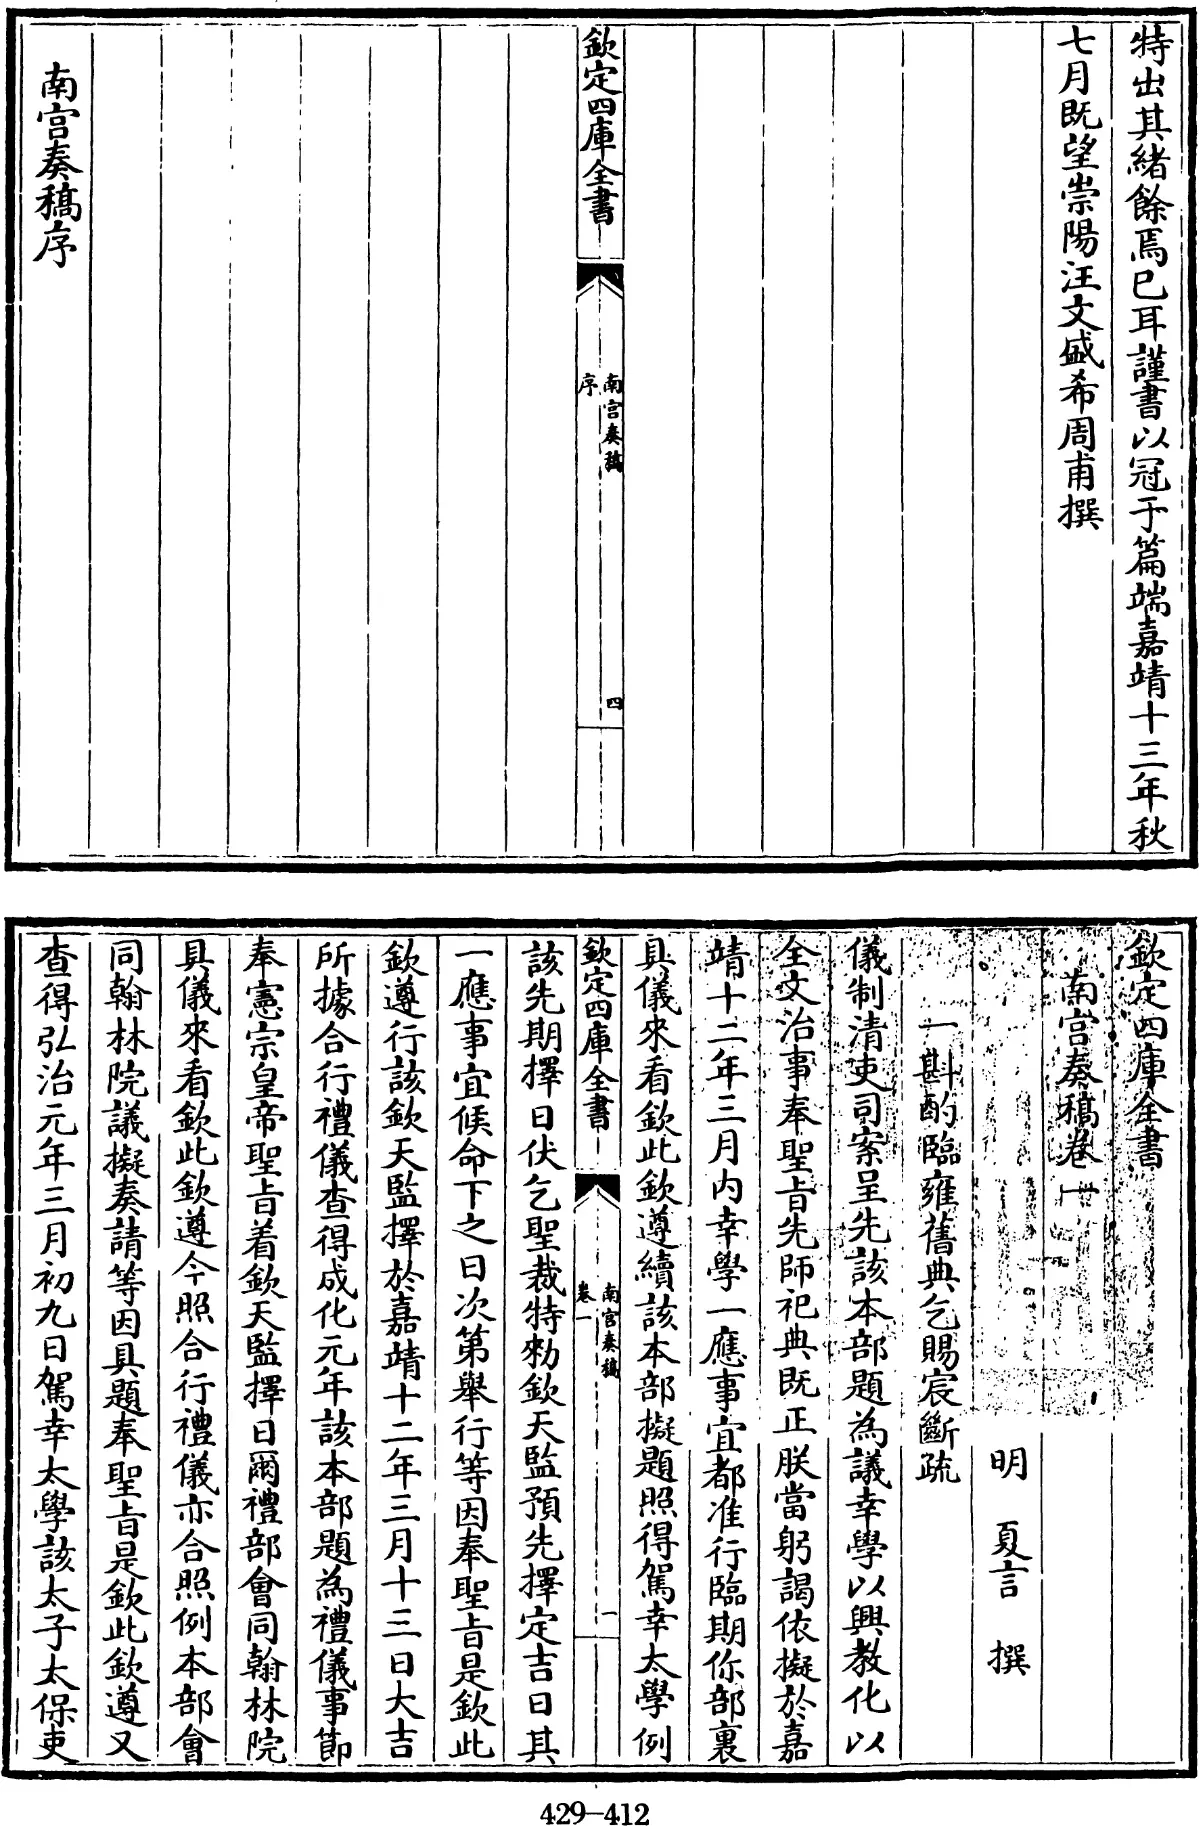 特出其緒餘焉已耳謹書以冠于篇端嘉靖十三年秋
七月既望崇陽汪文盛希周甫撰
欽定四庫全書
南宮奏稿
序
四
南宮奏稿序
欽定四庫全書
南宮奏稿卷一
明 夏言 撰
一斟酌臨雍舊典乞賜宸斷疏
儀制清吏司案呈先該本部題為議幸學以興教化以
全文治事奉聖旨先師祀典既正朕當躬謁依擬於嘉
靖十二年三月內幸學一應事宜都准行臨期你部裏
具儀來看欽此欽遵續該本部擬題照得駕幸太學例
欽定四庫全書
南宮奏稿
卷一
一
該先期擇日伏乞聖裁特勑欽天監預先擇定吉日其
一應事宜候命下之日次第舉行等因奉聖旨是欽此
欽遵行該欽天監擇於嘉靖十二年三月十三日大吉
所據合行禮儀查得成化元年該本部題為禮儀事節
奉憲宗皇帝聖旨着欽天監擇日爾禮部會同翰林院
具儀來看欽此欽遵今照合行禮儀亦合照例本部會
同翰林院議擬奏請等因具題奉聖旨是欽此欽遵又
查得弘治元年三月初九日駕幸太學該太子太保吏
429-412